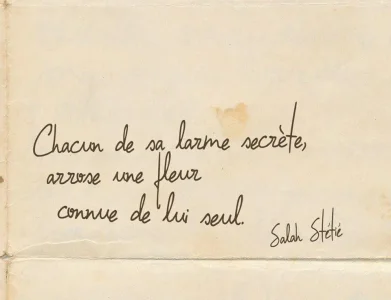 Chacun de sa larme secrète,
arrose une fleur
connue de lui seul.
Salah Stétié